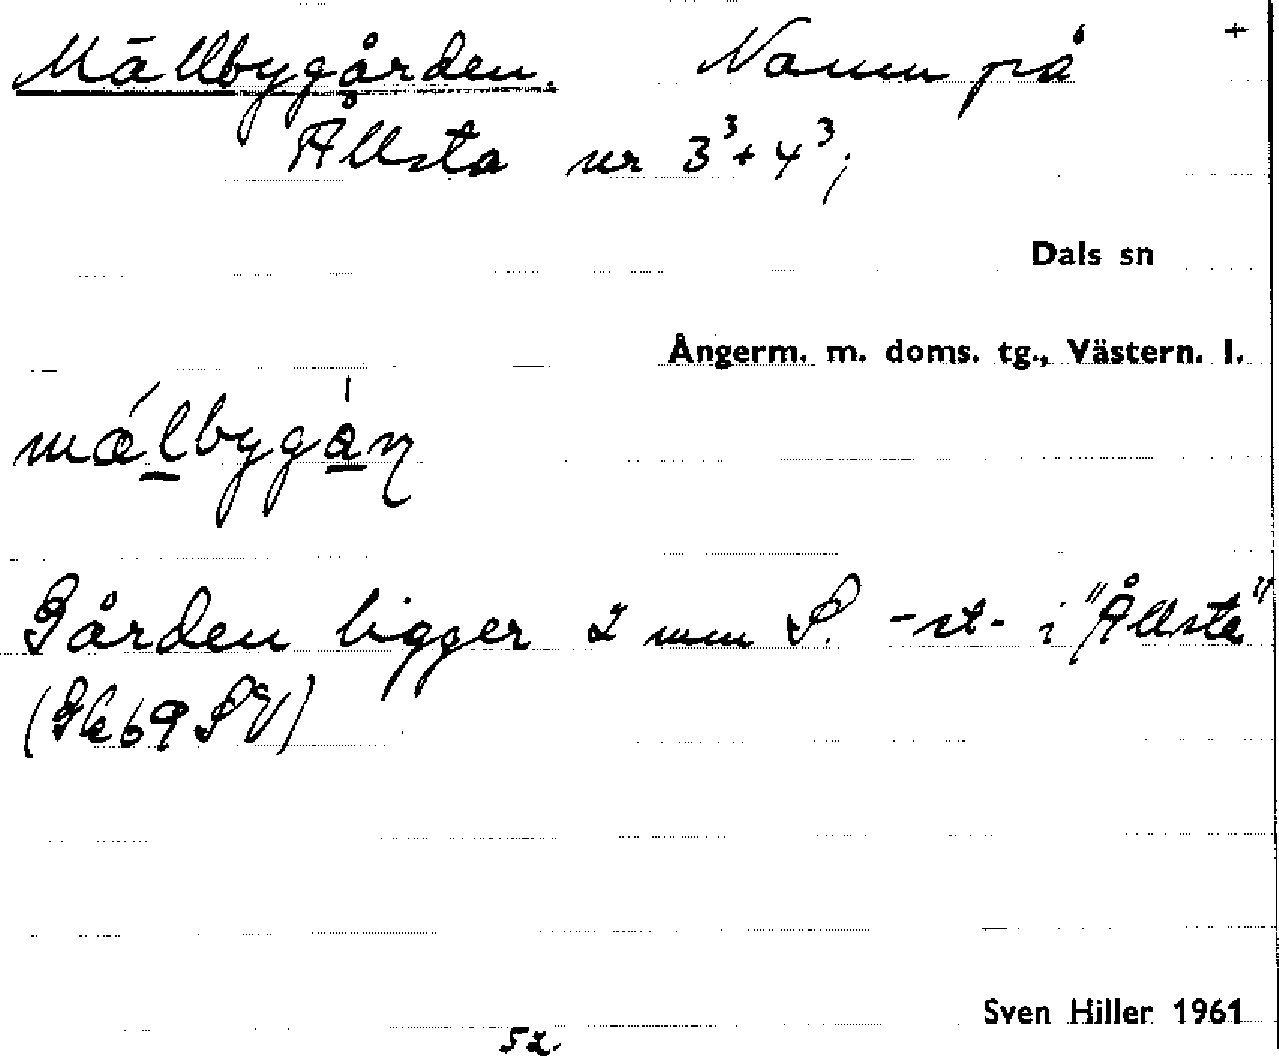 Mällbygården. Namn på +
Ållsta nr 3³+4³;
Dals sn
Ångerm. m. doms. tg., Västern. l.
mǽlbygáɳ
Gården ligger 2 mm S. -st- i "Ållsta"
(Gk 69 SV)
Sven Hiller 1961
52.